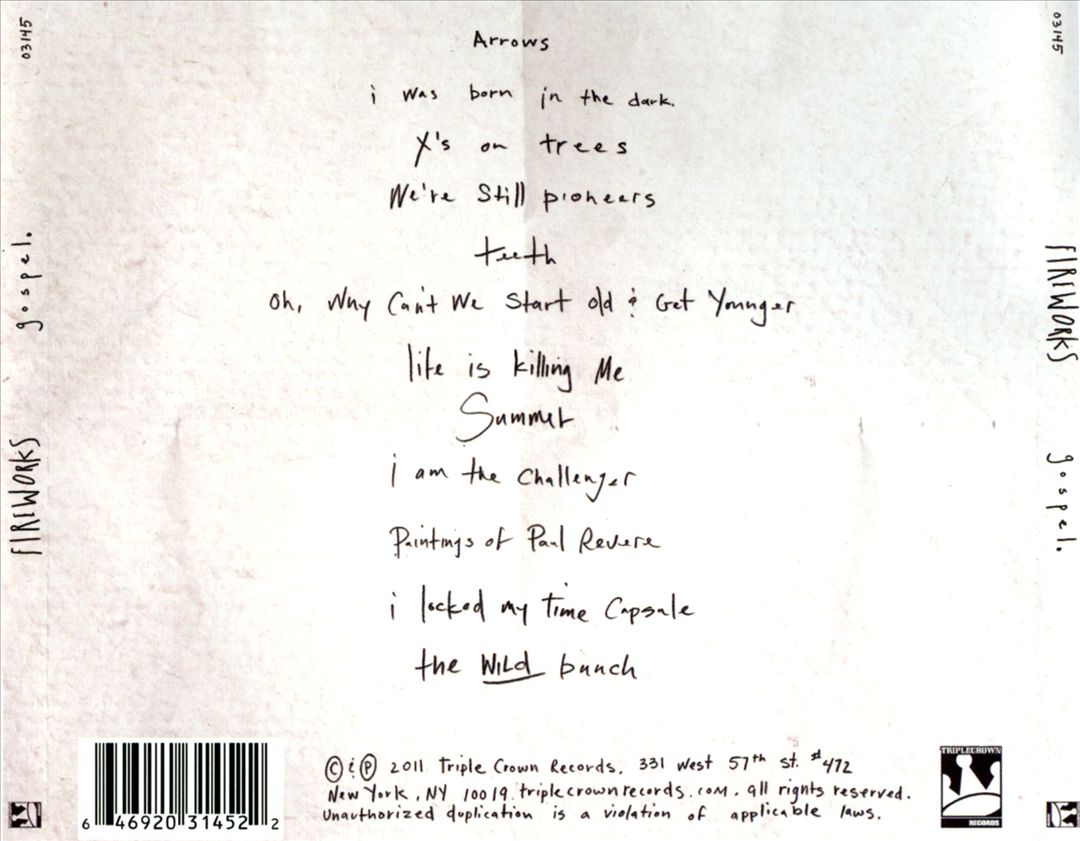 03145
gospel.
FIREWORKS
Arrows
i was born in the dark.
X's on trees
We're Still pioneers
teeth
Oh, Why Can't We Start old & Get Younger
life is killing Me
Summer
i am the Challenger
Paintings of Paul Revere
i locked my time Capsule
the WILd bunch
6 46920 31452 2
© & ℗ 2011 Triple Crown Records. 331 West 57th st. #472
New York, NY 10019. triplecrownrecords.com. all rights reserved.
Unauthorized duplication is a violation of applicable laws.
TRIPLECROWN
RECORDS
03145
FIREWORKS
gospel.